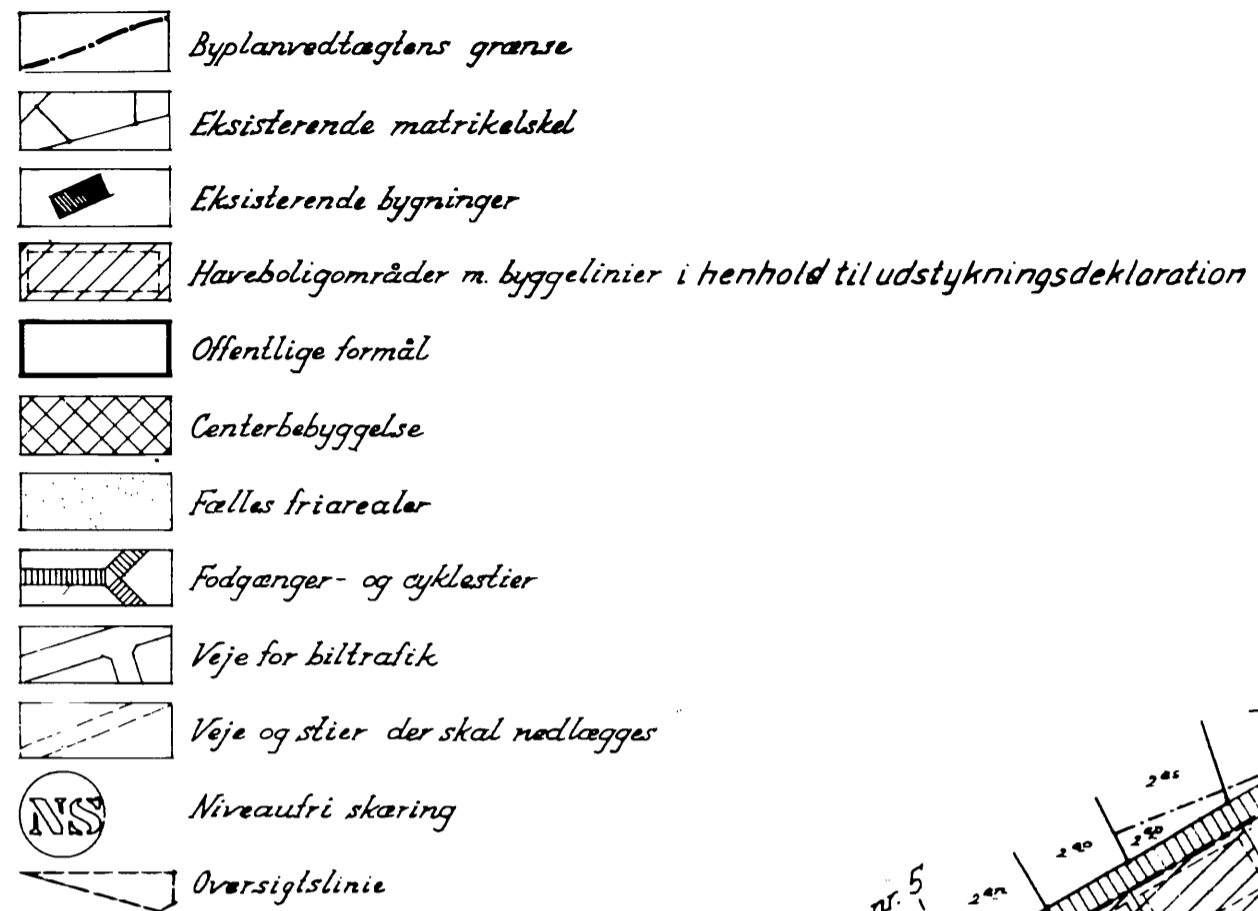 Byplanvedtægtens grænse
Eksisterende matrikelskel
Eksisterende bygninger
Haveboligområder m. byggelinier i henhold til udstykningsdeklaration
Offentlige formål
Centerbebyggelse
Fælles friarealer
Fodgænger- og cyklestier
Veje for biltrafik
Veje og stier der skal nedlægges
NS Niveaufri skæring
Oversigtslinie
2 as
2 ao
2 ao
nr. 5
2 an